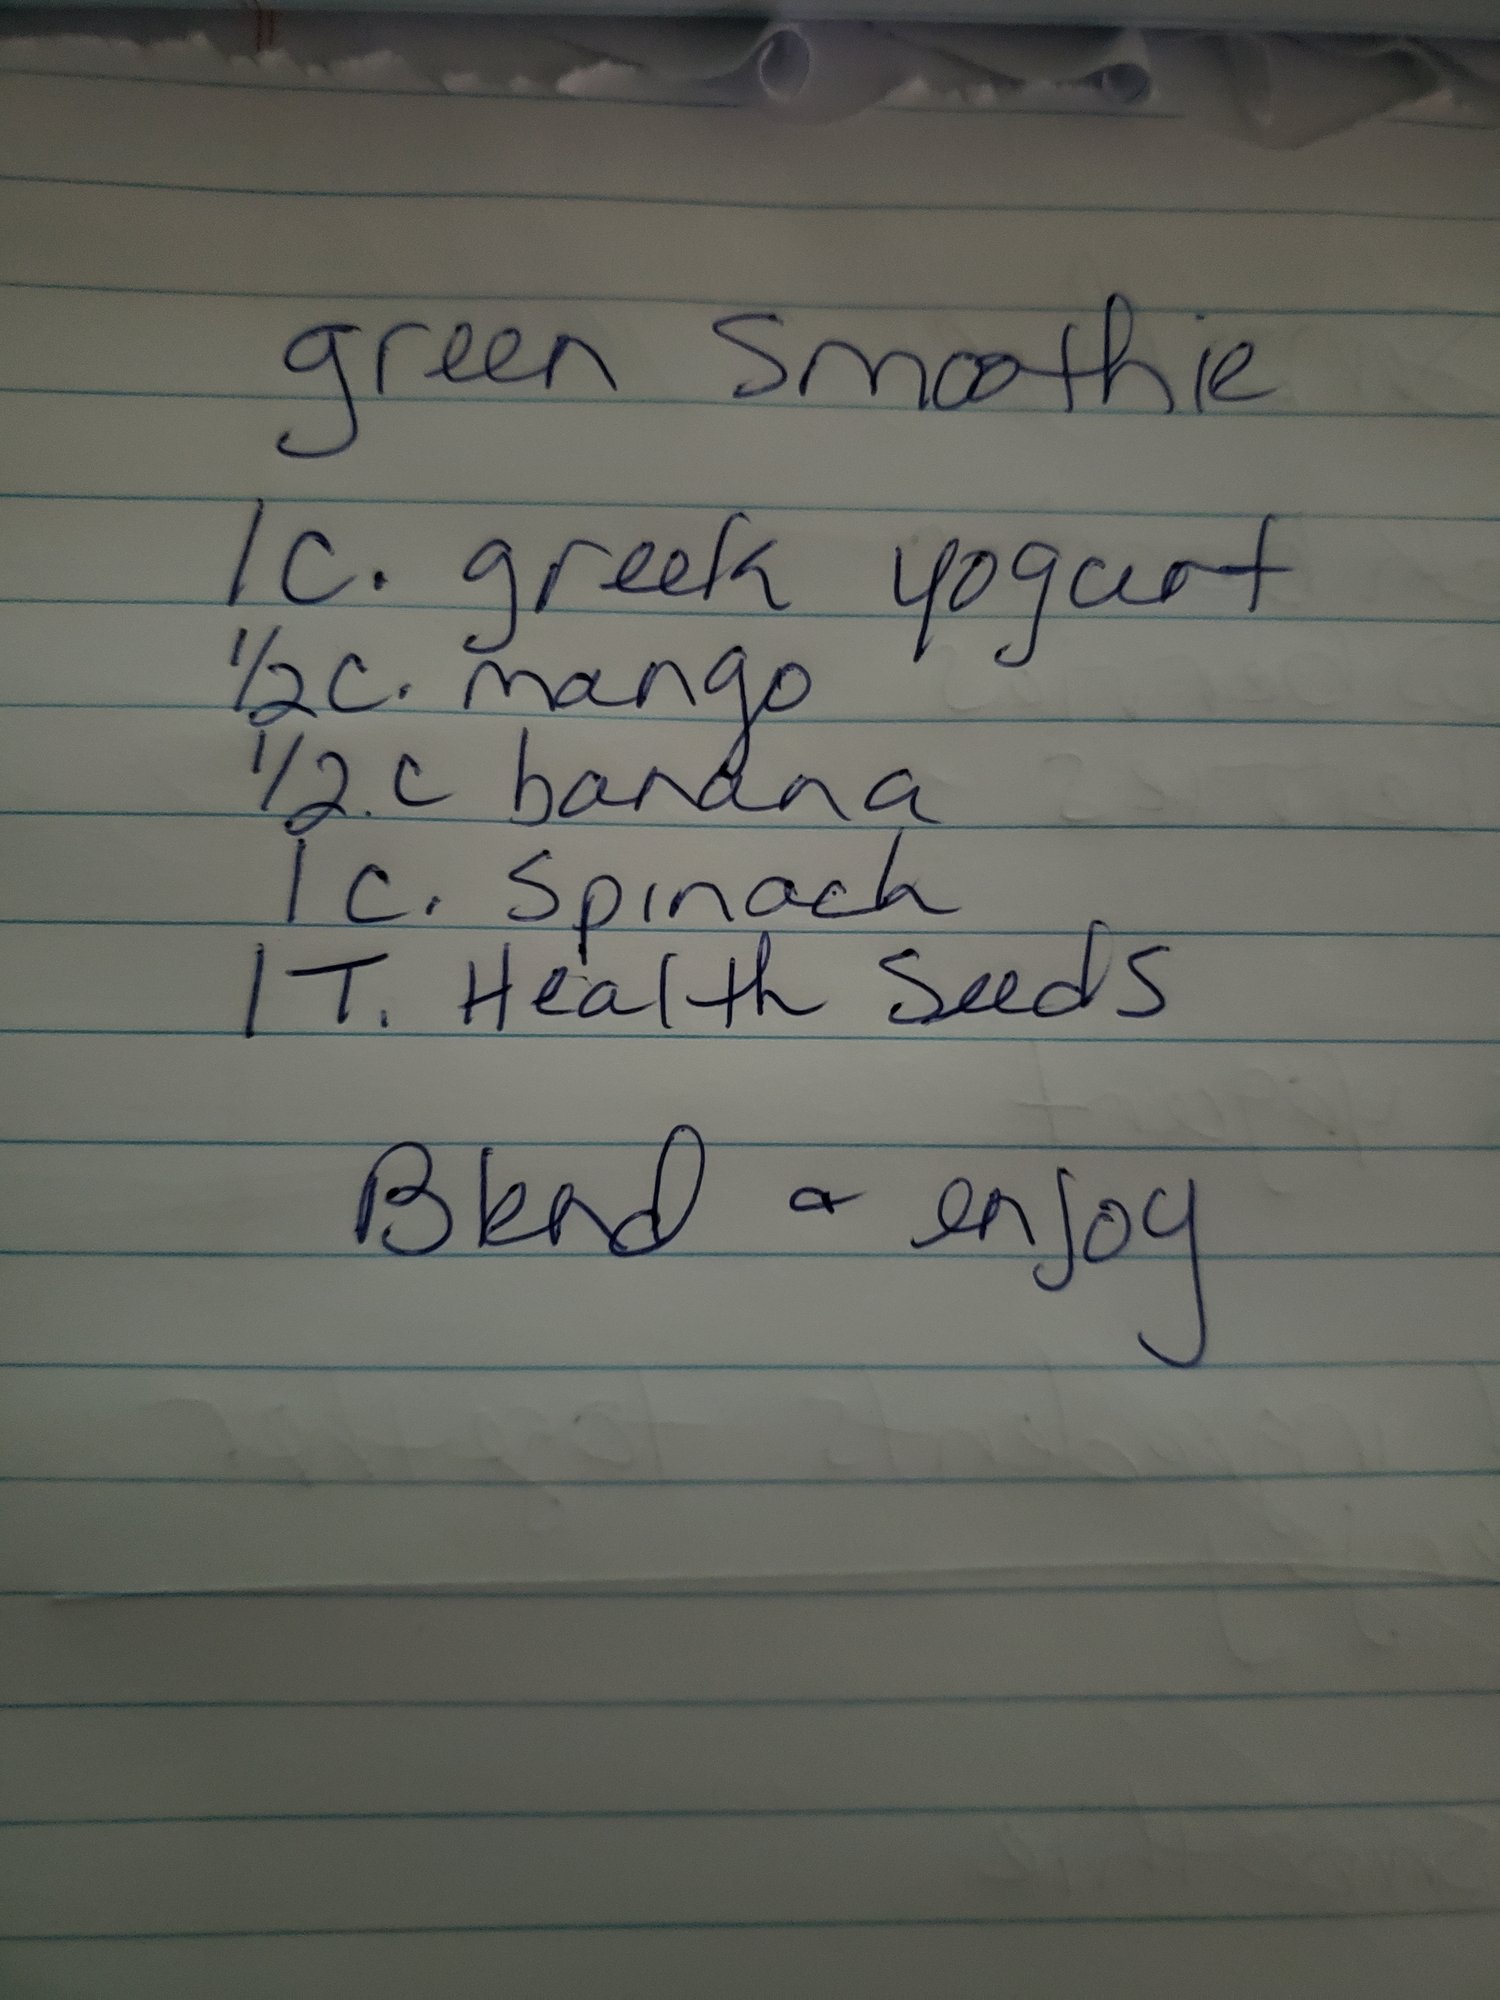 green Smoothie
1c. greek yogurt
1/2c. mango
1/2.c banana
1c. Spinach
1T. Health Seeds
Blend & enjoy